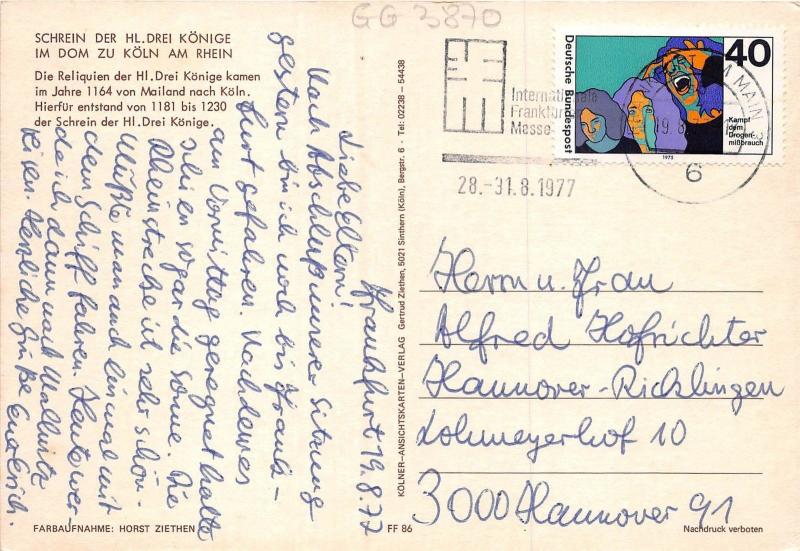 GG 3870
SCHREIN DER HL.DREI KÖNIGE
IM DOM ZU KÖLN AM RHEIN
Die Reliquien der Hl.Drei Könige kamen
im Jahre 1164 von Mailand nach Köln.
Hierfür entstand von 1181 bis 1230
der Schrein der Hl.Drei Könige.
Frankfurt 19.8.77
Liebe Eltern!
Nach Abschluß unserer Sitzung
gestern bin ich noch bis Frank-
furt gefahren. Nachdem es
am Vormittag geregnet hatte
schien sogar die Sonne. Die
Rheinstrecke ist sehr schön.
Müßte man auch einmal mit
dem Schiff fahren. Heute wer-
de ich dann nach
Herzliche Grüße Euer
FARBAUFNAHME: HORST ZIETHEN
KÖLNER-ANSICHTSKARTEN-VERLAG Gertrud Ziethen, 5021 Sinthern (Köln), Bergstr. 6 · Tel: 02238 — 54438
FF 86
Internationale
Frankfurter
Messe
28.-31.8.1977
Deutsche Bundespost
40
Kampf
dem
Drogen-
mißbrauch
1975
MAIN
19.8.
6
Herrn u. Frau
Alfred Hofrichter
Hannover-Ricklingen
Lohmeyerhof 10
3000 Hannover 91
Nachdruck verboten